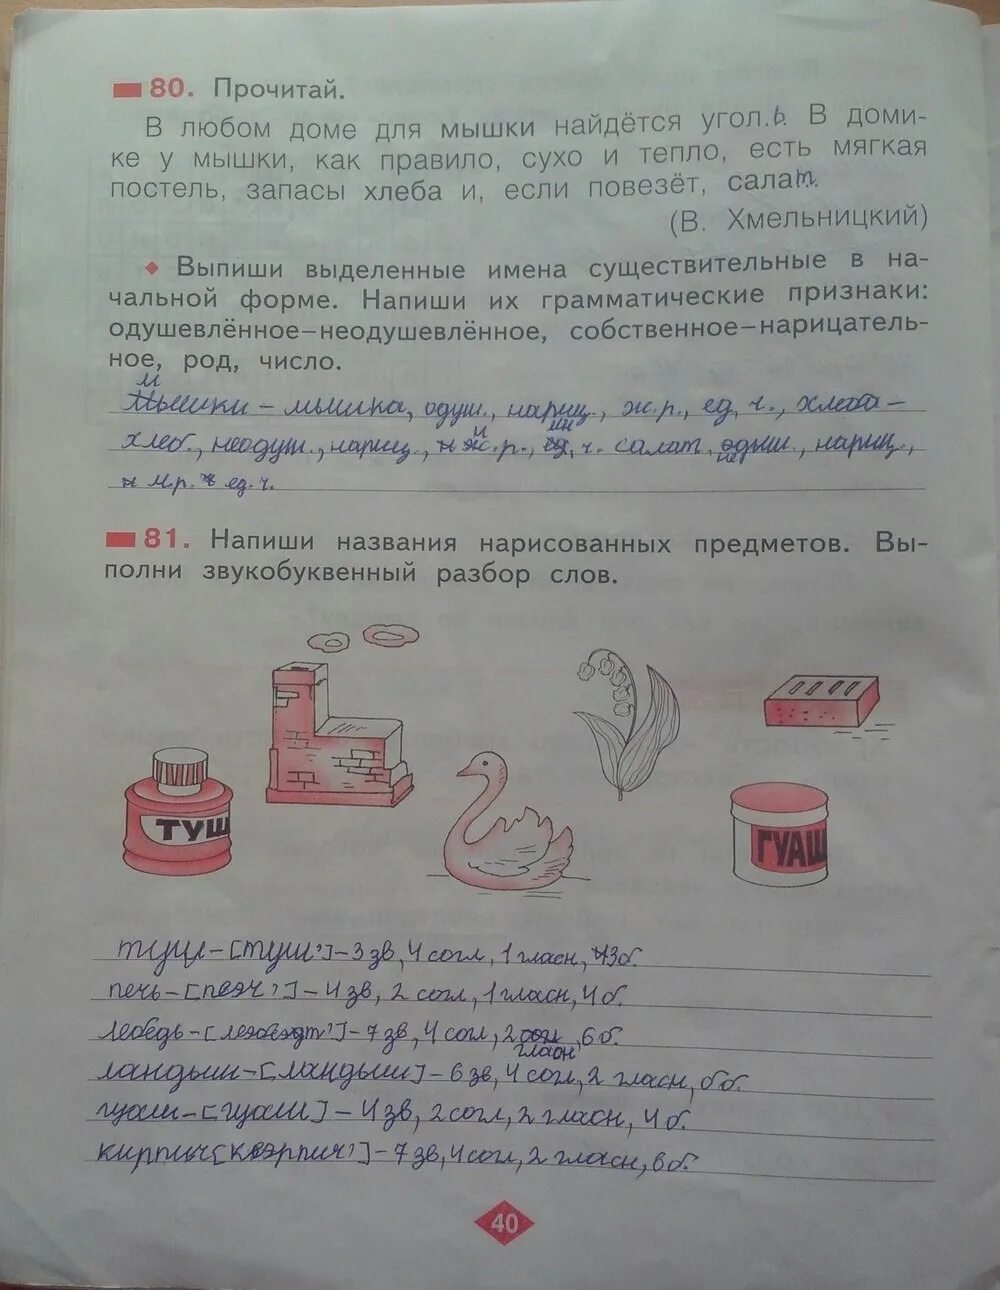 80. Прочитай.
В любом доме для мышки найдётся угол.ь. В доми-
ке у мышки, как правило, сухо и тепло, есть мягкая
постель, запасы хлеба и, если повезёт, салат.
(В. Хмельницкий)
Выпиши выделенные имена существительные в на-
чальной форме. Напиши их грамматические признаки:
одушевлённое–неодушевлённое, собственное–нарицатель-
ное, род, число.
Мышки – мышка, одуш., нариц., ж.р., ед. ч., хлеба –
хлеб, неодуш., нариц., р., ч. салат, нариц.,
м.р. ед. ч.
81. Напиши названия нарисованных предметов. Вы-
полни звукобуквенный разбор слов.
ТУШ
ГУАШ
туш – [туш’] – 3 зв, 4 согл, 1 гласн, 3 б.
печь – [пеэч’] – 4 зв, 2 согл, 1 гласн, 4 б.
лебедь – – 7 зв, 4 согл, 2 гласн, 6 б.
ландыш – [ландыш] – 6 зв, 4 согл, 2 гласн, 6 б.
гуаш – [гуаш] – 4 зв, 2 согл, 2 гласн, 4 б.
кирпич – 7 зв, 4 согл, 2 гласн, 6 б.
40